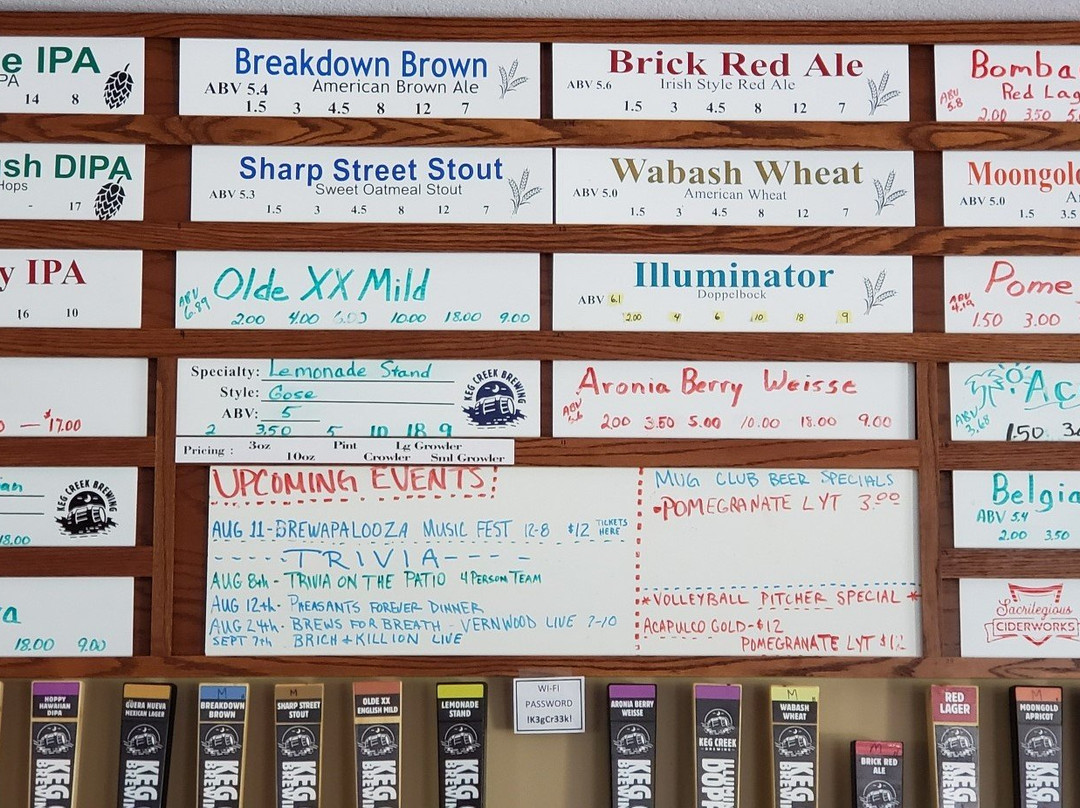 e IPA
PA
14 8
Breakdown Brown
ABV 5.4 American Brown Ale
1.5 3 4.5 8 12 7
Brick Red Ale
ABV 5.6 Irish Style Red Ale
1.5 3 4.5 8 12 7
Bomba
Red Lag
ABV 5.8
2.00 3.50 5.
sh DIPA
Hops
- 17
Sharp Street Stout
ABV 5.3 Sweet Oatmeal Stout
1.5 3 4.5 8 12 7
Wabash Wheat
ABV 5.0 American Wheat
1.5 3 4.5 8 12 7
Moongold
ABV 5.0
1.5 3.5
y IPA
16 10
Olde XX Mild
ABV 6.89
2.00 4.00 6.00 10.00 18.00 9.00
Illuminator
ABV 6.1 Doppelbock
2.00 4 6 10 18 9
Pome
ABV 4.19
1.50 3.00
— $17.00
Specialty: Lemonade Stand
Style: Gose
ABV: 5
2 3.50 5 10 18 9
KEG CREEK BREWING
Aronia Berry Weisse
ABV
2.00 3.50 5.00 10.00 18.00 9.00
Ac
ABV 3.68
1.50
Pricing : 3oz Pint Lg Growler
10oz Crowler Sml Growler
KEG CREEK BREWING
18.00
UPCOMING EVENTS!
AUG 11-BREWAPALOOZA MUSIC FEST 12-8 $12 TICKETS HERE
----TRIVIA----
AUG 8th - TRIVIA ON THE PATIO 4 PERSON TEAM
AUG 12th - PHEASANTS FOREVER DINNER
AUG 24th - BREWS FOR BREATH - VERNWOOD LIVE 7-10
SEPT 7th BRICH + KILLION LIVE
MUG CLUB BEER SPECIALS
-POMEGRANATE LYT 3.00
*VOLLEYBALL PITCHER SPECIAL *
ACAPULCO GOLD-$12
POMEGRANATE LYT $12
Belgia
ABV 5.4
2.00 3.50
a
18.00 9.00
Sacrilegious
CIDERWORKS
HOPPY HAWAIIAN DIPA
GÜERA NUEVA MEXICAN LAGER
M
BREAKDOWN BROWN
M
SHARP STREET STOUT
OLDE XX ENGLISH MILD
LEMONADE STAND
WI-FI
PASSWORD
!K3gCr33k!
ARONIA BERRY WEISSE
KEG CREEK
BREWING
M
WABASH WHEAT
M
BRICK RED ALE
RED LAGER
M
MOONGOLD APRICOT